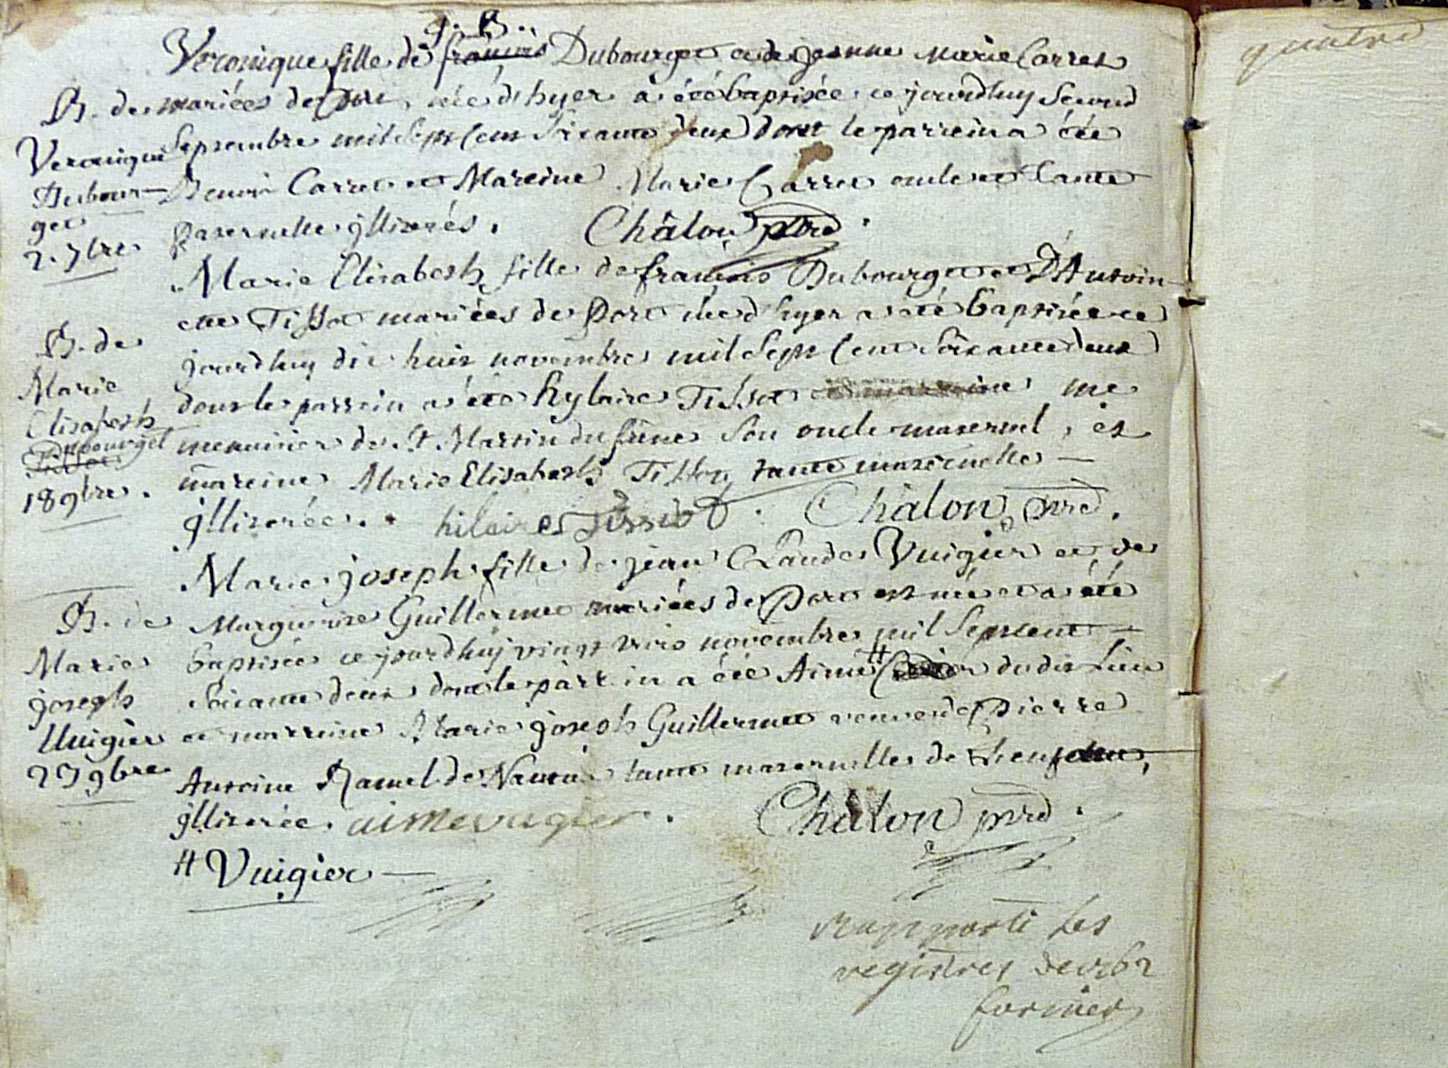 J. B.
Veronique fille de françois Dubourget et de jeanne Marie Carret
B. de mariées de Port, née d'hyer a été baptisée ce jourd'huy second
Veronique Septembre mil Sept Cent Soixante deux dont le parrein a été
Dubour- Benoit Carret et Mareine Marie Carret oncle et tante
get paternelle jlliterés. Châlon ptre
2. 7bre
Marie Elisabeth fille de françois Dubourget et D'Antoin
ette Tissot mariées de Port née d'hyer a été baptisée ce
B. de jourd'huy dix huit novembre mil Sept Cent Soixante deux
Marie dont le parrein a été hylaire Tissot et marreine me
Elisabeth
Dubourget meunier de St Martin du frene son oncle maternel, et
Tissot
18 9bre. mareine Marie Elisabeth Tissot tante maternelle
jlliterée. hilaire Tissot. Châlon ptre.
Marie joseph fille de jean Claude Vuigier et de
B. de Marguerite Guillermet mariées de Port est née et a été
Marie baptisée ce jourd'huj vingt trois novembre mil Septcent
joseph Soixante deux dont le parrein a été Aimé # du dit Lieu
Vuigier et marreine Marie joseph Guillermet veuve de Pierre
23 9bre Antoine Ramel de Nantua tante maternelle de L'enfant,
jlliterée. aime vugier. Châlon ptre.
# Vuigier
rapporté les
registres de 1762
fornier
quatre